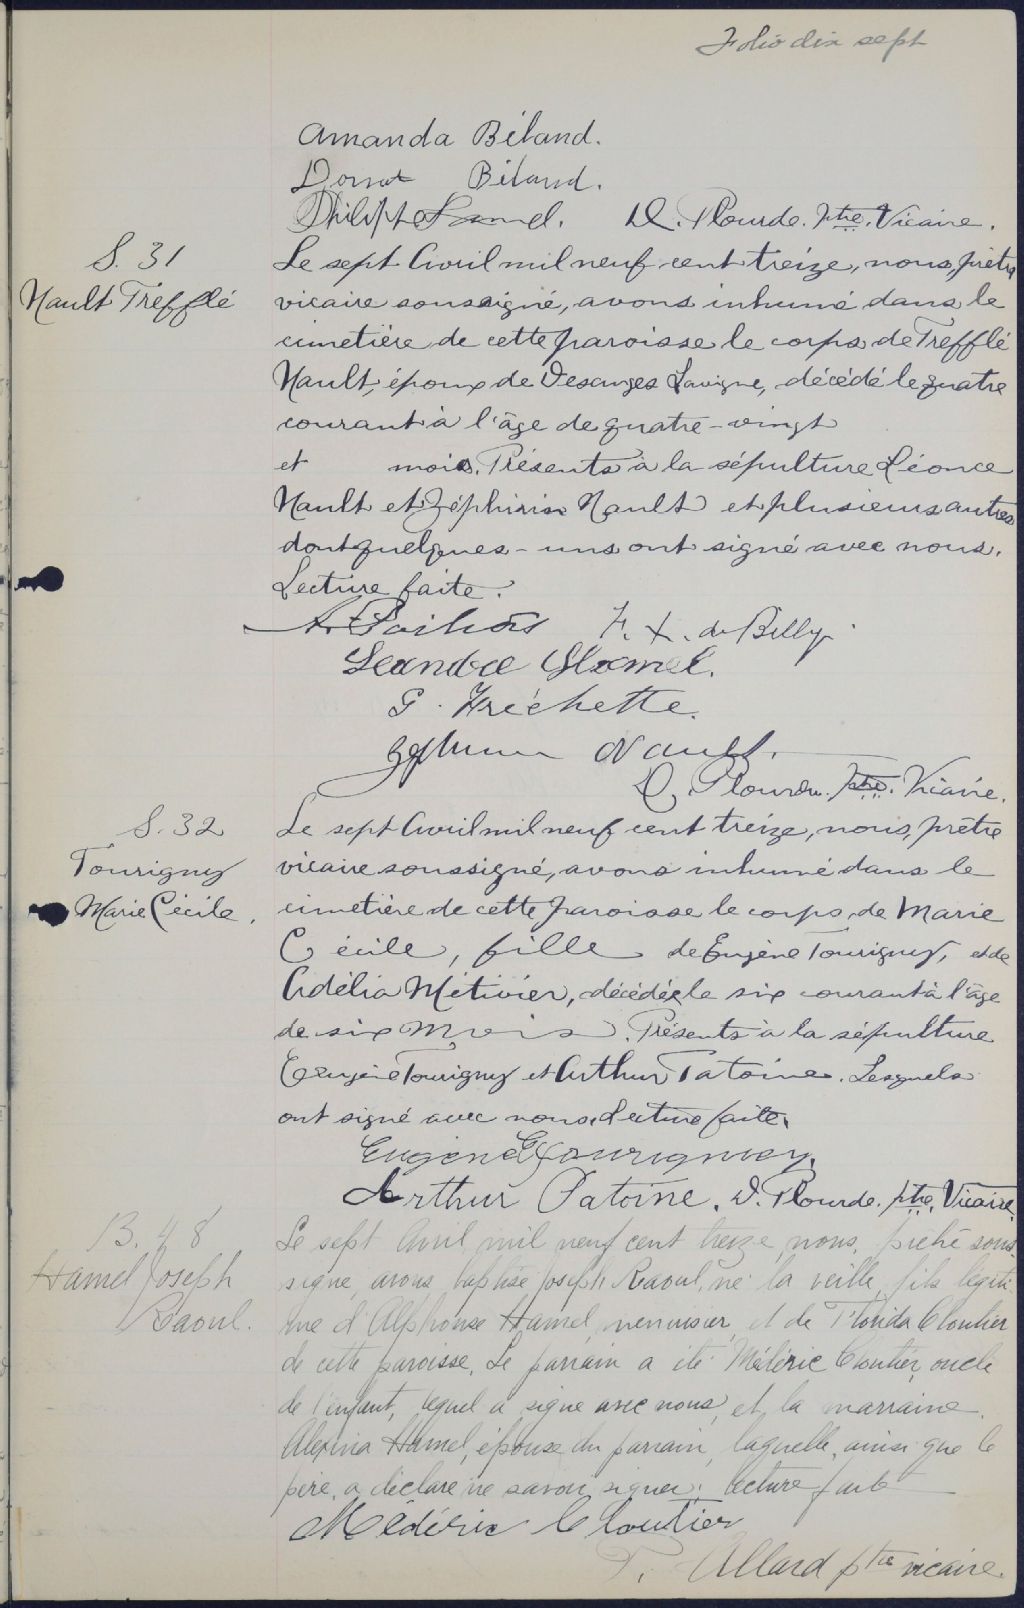 Folio dix sept
Amanda Béland.
Donat Béland.
Philippe Hamel. D. Plourde. Ptre. Vicaire.
S. 31
Nault Trefflé
Le sept Avril mil neuf cent treize, nous, prêtre
vicaire soussigné, avons inhumé dans le
cimetière de cette paroisse le corps de Trefflé
Nault, époux de Desanges Lavigne, décédé le quatre
courant à l'âge de quatre-vingt
et mois. Présents à la sépulture Léonce
Nault et Zéphirin Nault et plusieurs autres
dont quelques-uns ont signé avec nous.
Lecture faite.
F. X. de Billy
Leandre Hamel.
G. Fréchette.
Nault.
D. Plourde. Ptre. Vicaire.
S. 32
Tourigny
Marie Cécile.
Le sept Avril mil neuf cent treize, nous, prêtre
vicaire soussigné, avons inhumé dans le
cimetière de cette paroisse le corps de Marie
Cécile, fille de Eugène Tourigny, et de
Adélia Métivier, décédée le six courant à l'âge
de six mois. Présents à la sépulture
Eugène Tourigny et Arthur Patoine. Lesquels
ont signé avec nous. Lecture faite.
Eugène Tourigney.
Arthur Patoine. D. Plourde. ptre. Vicaire.
B. 48
Hamel Joseph
Raoul.
Le sept Avril mil neuf cent treize, nous, prêtre sous-
signé, avons baptisé Joseph Raoul, né la veille, fils légiti-
me d'Alphonse Hamel, menuisier, et de Florida Cloutier
de cette paroisse. Le parrain a été Médéric Cloutier, oncle
de l'enfant, lequel a signé avec nous, et la marraine
Alexina Hamel, épouse du parrain, laquelle, ainsi que le
père, a déclaré ne savoir signer. Lecture faite
Médéric Cloutier
T. Allard ptre vicaire.